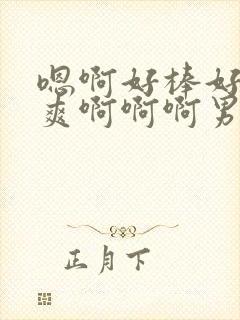 嗯啊好棒好
爽啊啊啊男
正月下